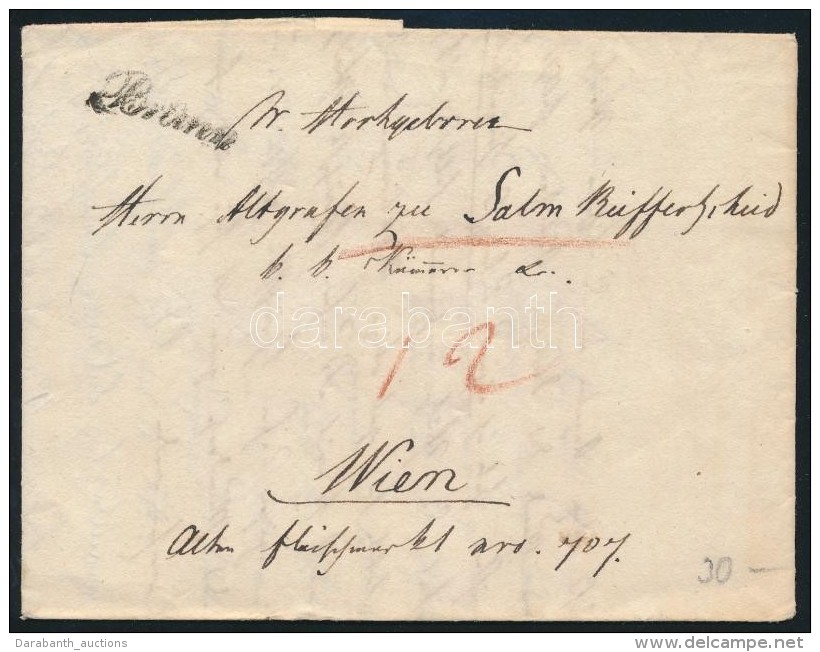 Brünn
Sr. Hochgeboren
Herrn Altgrafen zu Salm Reifferscheid
k. k. Kämmerer &c.
darabanth
12
Wien
Alten Fleischmarkt nro. 707.
30 —
Darabanth_auctions
delcampe.net